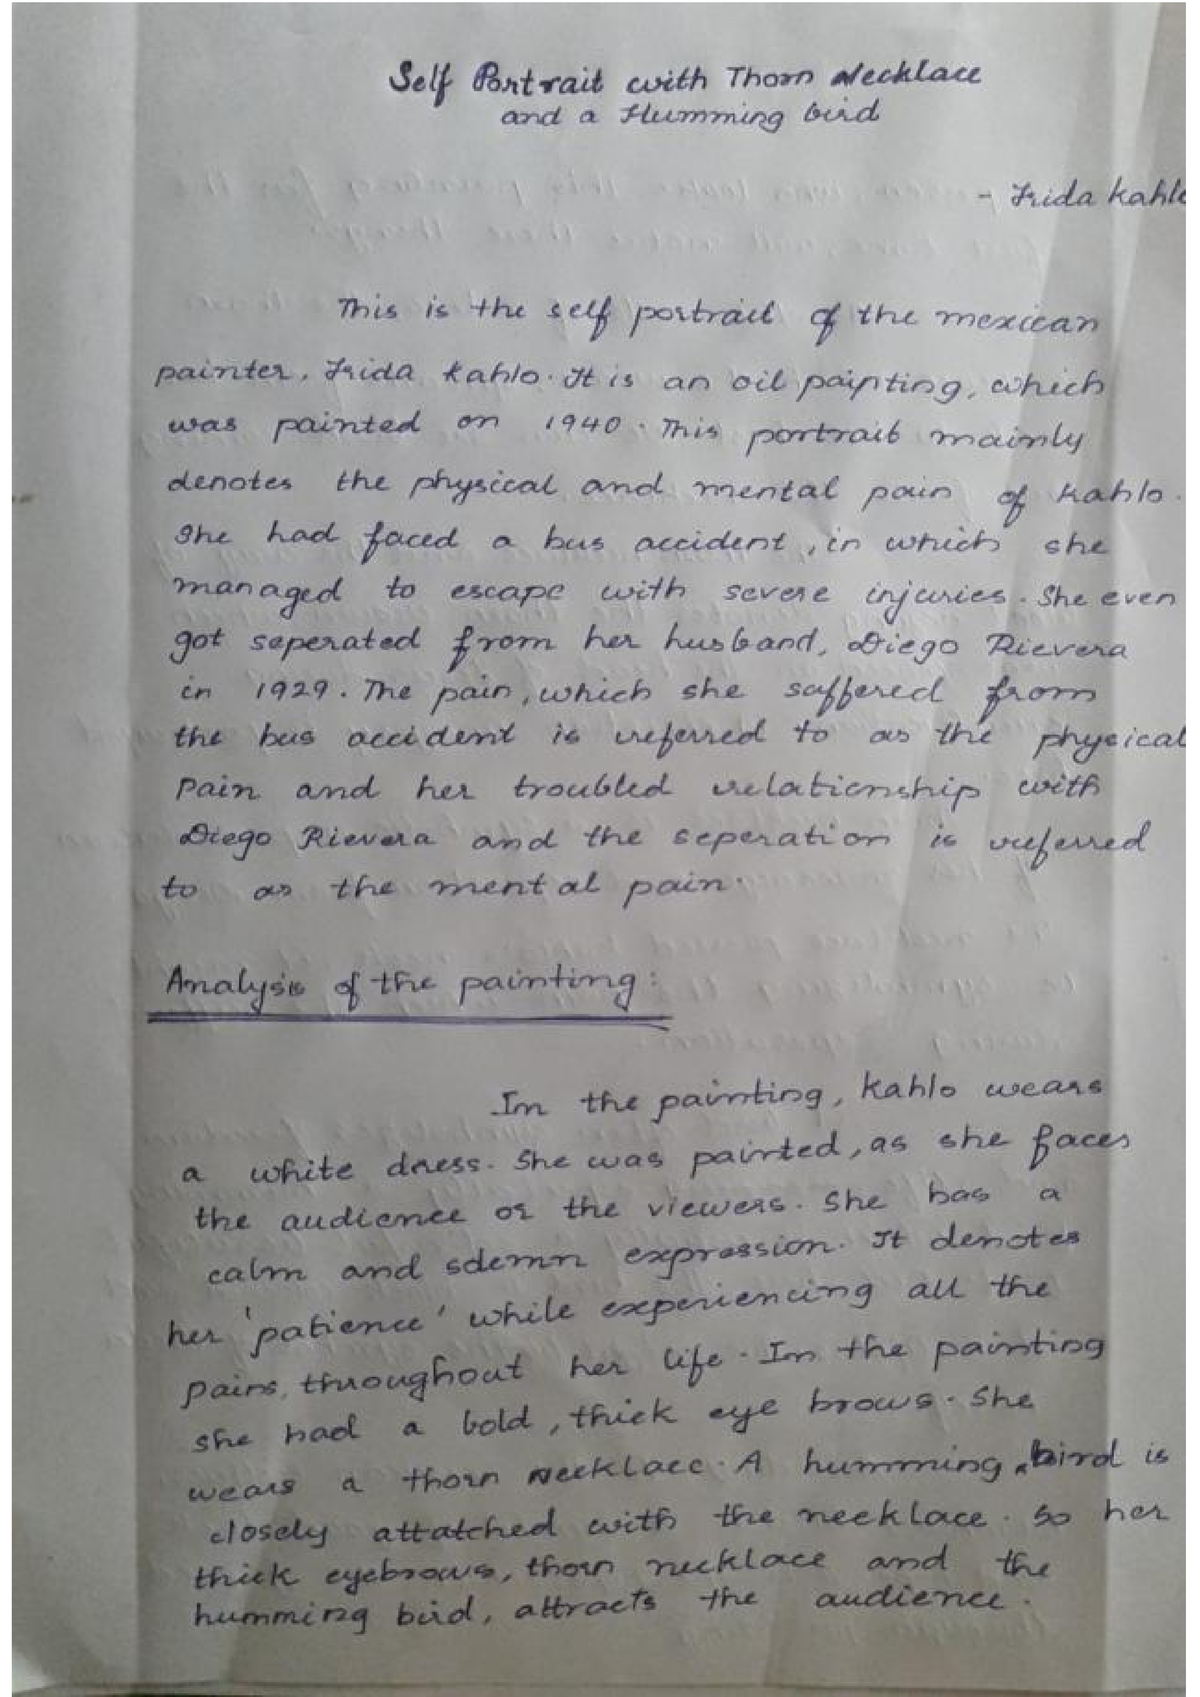 Self Portrait with Thorn Necklace
and a Humming bird
- Frida Kahlo
This is the self portrait of the mexican
painter, Frida Kahlo. It is an oil painting, which
was painted on 1940. This portrait mainly
denotes the physical and mental pain of Kahlo.
She had faced a bus accident, in which she
managed to escape with severe injuries. She even
got seperated from her husband, Diego Rievera
in 1929. The pain, which she suffered from
the bus accident is referred to as the physical
Pain and her troubled relationship with
Diego Rievera and the seperation is referred
to as the mental pain.
Analysis of the painting:
In the painting, Kahlo wears
a white dress. She was painted, as she faces
the audience or the viewers. She has a
calm and solemn expression. It denotes
her 'patience' while experiencing all the
pains, throughout her life. In the painting
she had a bold, thick eye brows. She
wears a thorn necklace. A humming bird is
closely attatched with the necklace. So her
thick eyebrows, thorn necklace and the
humming bird, attracts the audience.